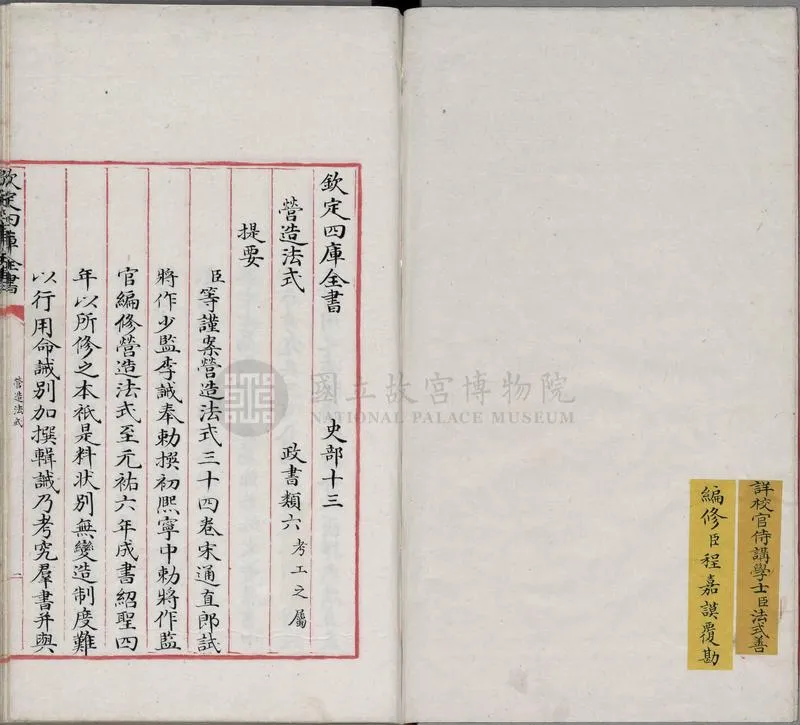 詳校官侍講學士臣法式善
編修臣程嘉謨覆勘
欽定四庫全書 史部十三
營造法式 政書類六考工之屬
提要
臣等謹案營造法式三十四卷宋通直郎試
將作少監李誡奉勅撰初熙寧中勅將作監
官編修營造法式至元祐六年成書紹聖四
年以所修之本祇是料狀別無變造制度難
以行用命誡別加撰輯誡乃考究羣書并與
欽定四庫全書
營造法式
國立故宮博物院
NATIONAL PALACE MUSEUM